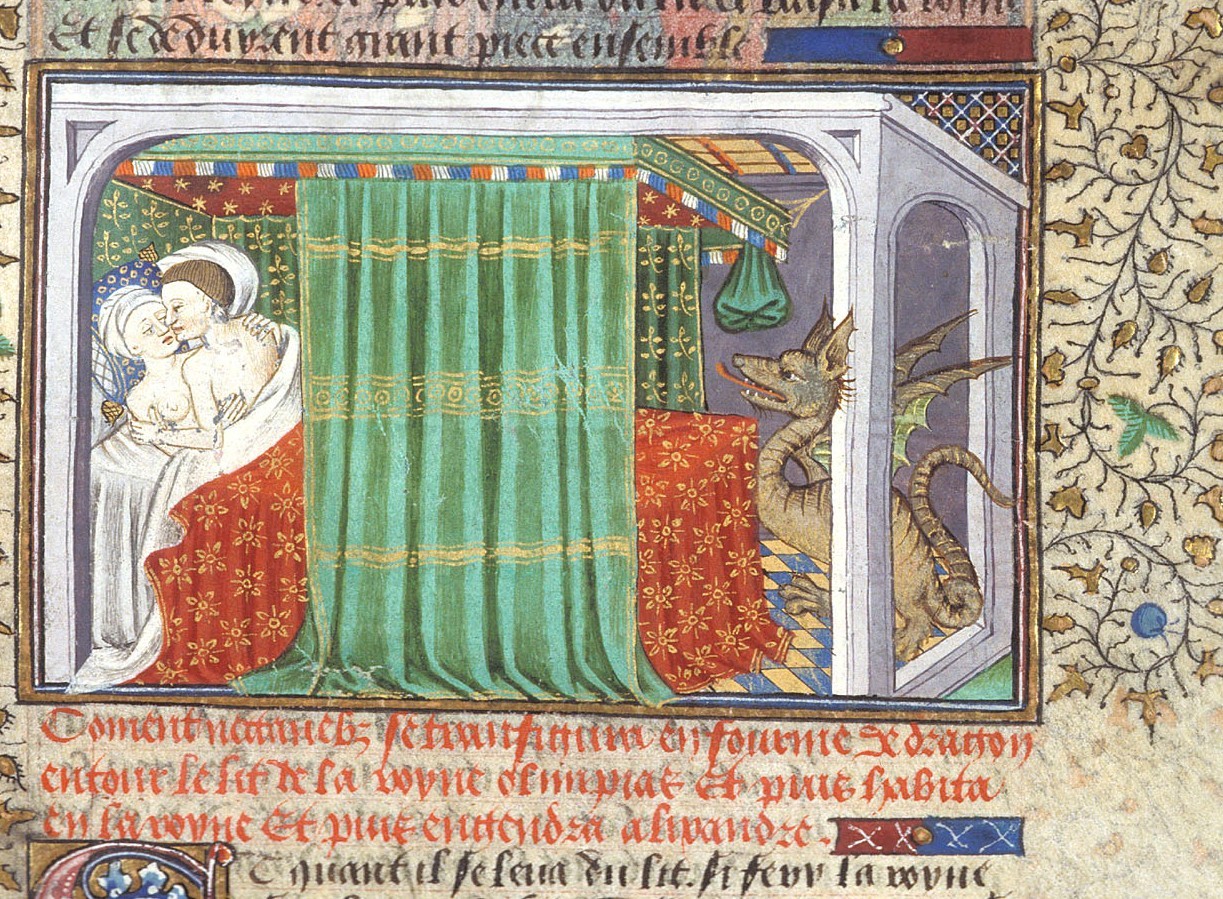 Et se deduyrent grant piece ensemble
Coment nectanebz se transfigura en fourme de dragon
entour le lit de la royne olimpias Et puis habita
en la royne Et puis engendra alixandre.
Et quant il se leva du lit. si fery la royne